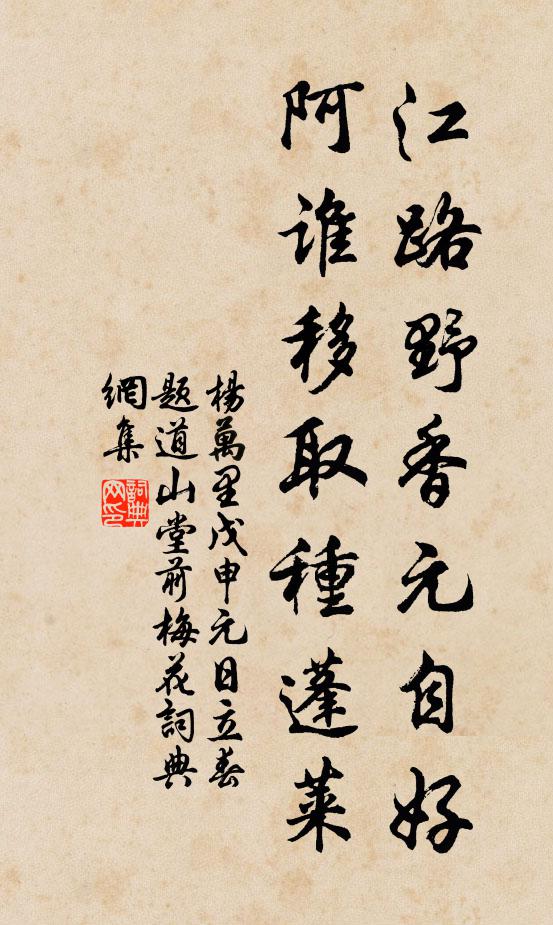 江路野香元自好
阿谁移取種蓬萊
楊萬里戊申元日立春
题道山堂前梅花詞典
網集
詞典
网印